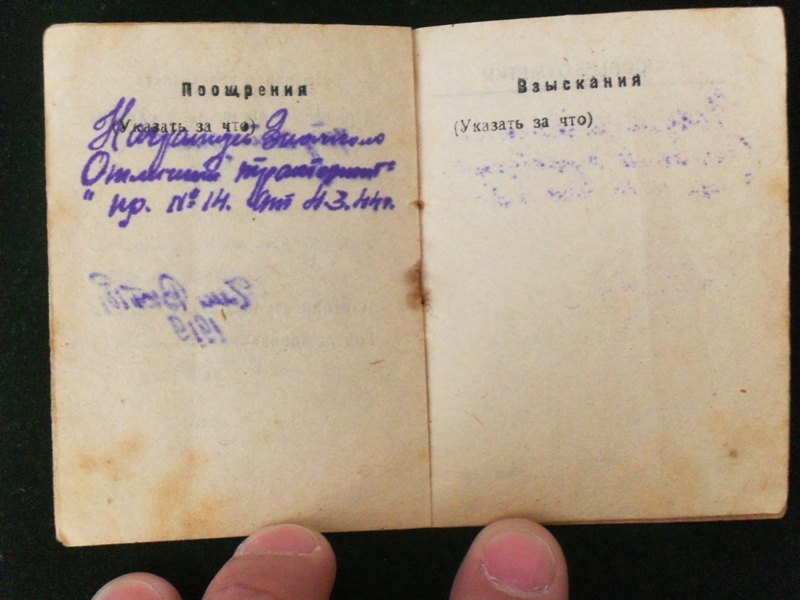 Поощрения
(Указать за что)
Награжден Значком
Отличный тракторист"
" пр. № 14. от 4.3.44г.
1919
Взыскания
(Указать за что)